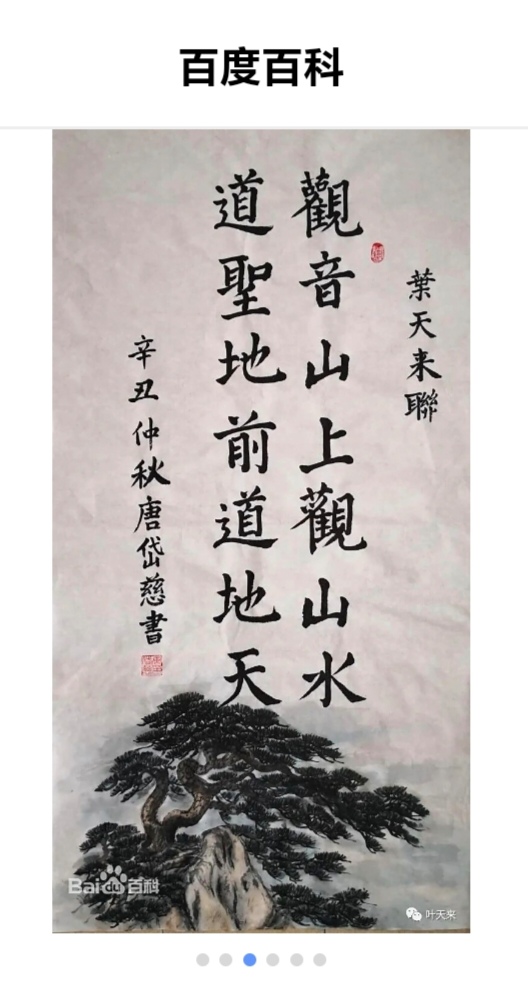 百度百科
葉天来聯
觀音山上觀山水
道聖地前道地天
辛丑仲秋唐岱慈書
Baidu百科
叶天来